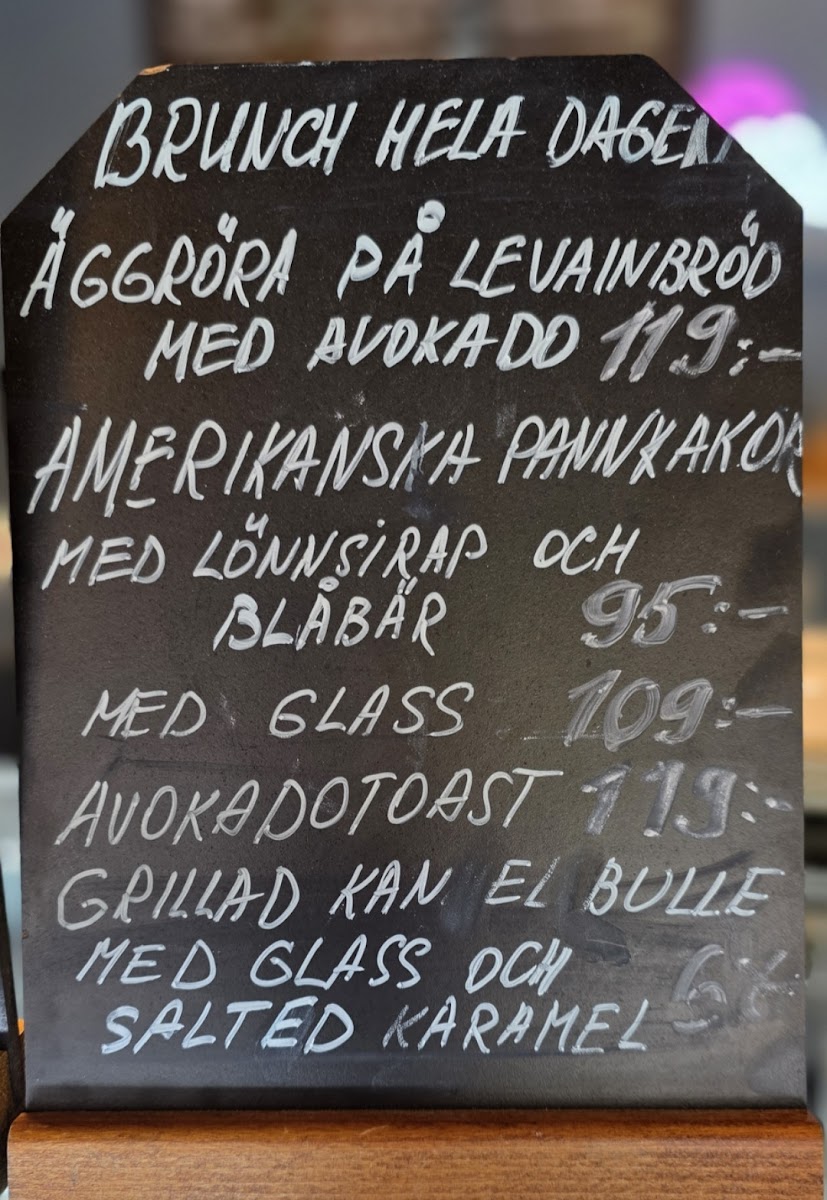 BRUNCH HELA DAGEN
ÄGGRÖRA PÅ LEVAINBRÖD
MED AVOKADO 119:-
AMERIKANSKA PANNKAKOR
MED LÖNNSIRAP OCH
BLÅBÄR 95:-
MED GLASS 109:-
AVOKADOTOAST 119:-
GRILLAD KAN EL BULLE
MED GLASS OCH
SALTED KARAMEL